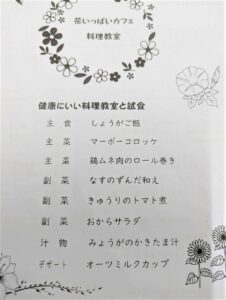 花いっぱいカフェ
料理教室
健康にいい料理教室と試食
主 食 しょうがご飯
主 菜 マーボーコロッケ
主 菜 鶏ムネ肉のロール巻き
副 菜 なすのずんだ和え
副 菜 きゅうりのトマト煮
副 菜 おからサラダ
汁 物 みょうがのかきたま汁
デザート オーツミルクカップ